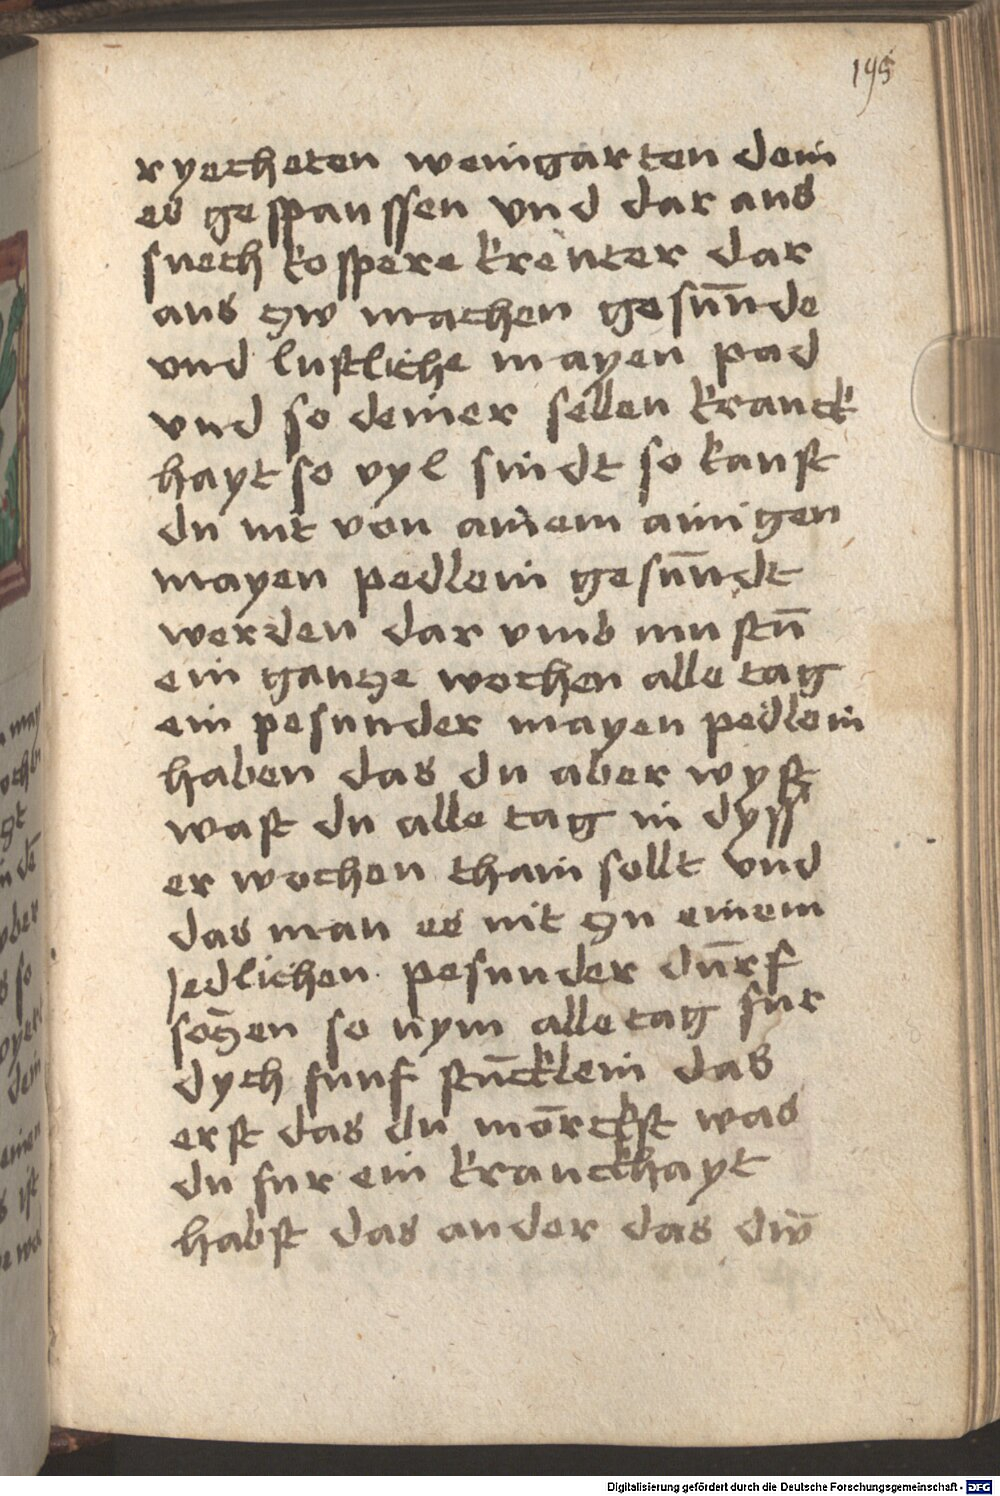 195
ryecheten weingarten dein
es gespanssen vnd dar aus
suech kospere kreuter dar
aus zw machen gesūnde
vnd lustliche mayen pad
vnd so deiner sellen kranck
hayt so vyl sindt so kanst
du nit von ainem ainigen
mayen pedlein gesūndt
werden dar vmb mustū
ein gantze wochen alle tag
ein pesunder mayen pedlein
haben das du aber wyst
wast du alle tag in dyss
er wochen thain sollt vnd
das man es nit zu einem
jedlichen pesunder dūrf
sozen so nym alle tag fur
dych funf stūcklein das
erst das du mörckst was
du fur ein kranckhayt
habst das ander das dw̄
Digitalisierung gefördert durch die Deutsche Forschungsgemeinschaft - DFG